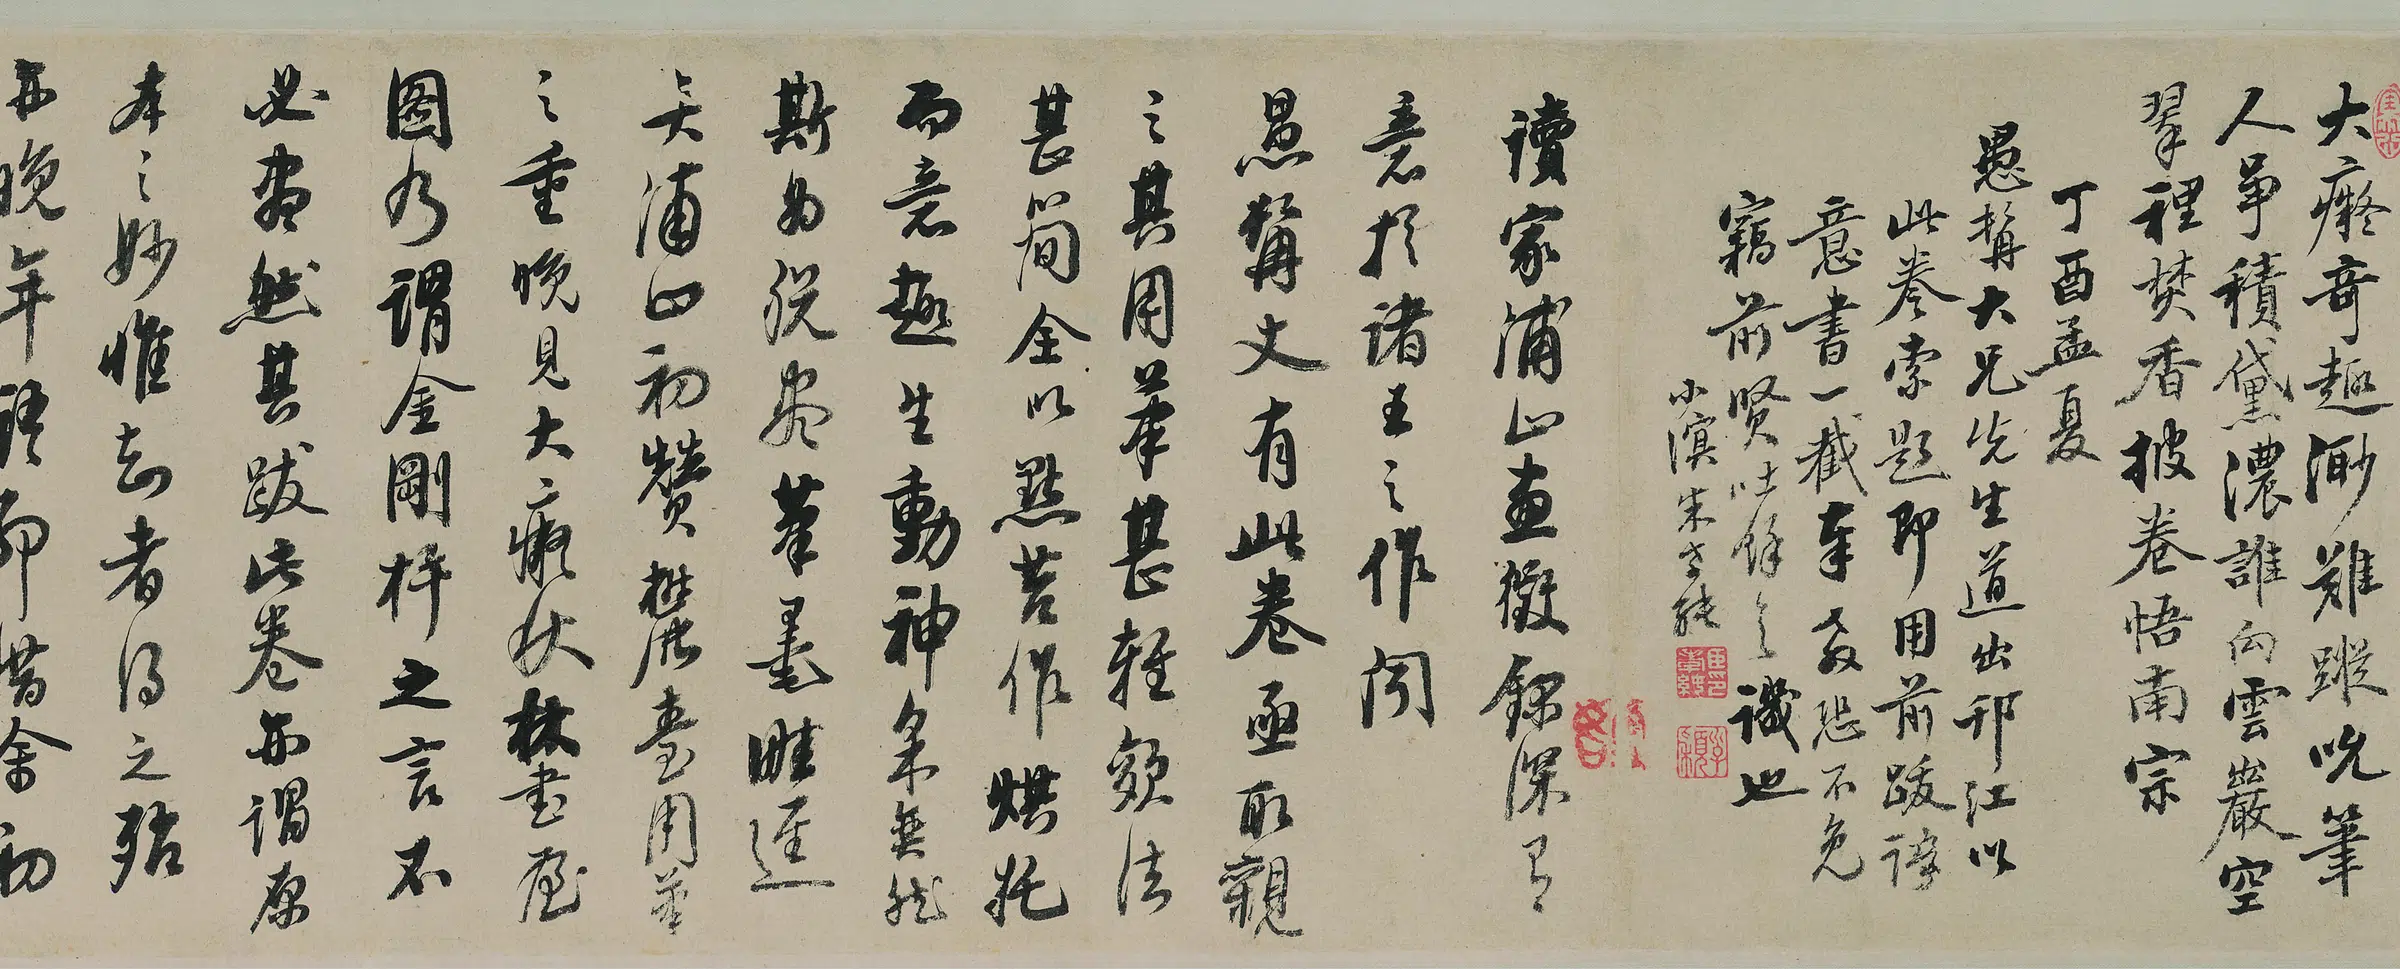 大癡奇趣渺難蹤吮筆
人爭積黛濃誰向雲巖空
翠裡焚香披卷悟南宗
丁酉孟夏
愚韝大兄先生道出邗江以
此卷索題即用前跋語
意書一截奉教恐不免
竊前賢吐餘之譏也
小漠朱
讀家浦山畫徵錄深有
意於諸王之作聞
愚韝丈有此卷亟取觀
之其用筆甚輕皴法
甚簡全以點苔作烘托
而意趣生動神采無然
斯為脫盡筆墨畦逕
矣浦山初贊麓臺用筆
之重晚見大癡秋林書屋
圖乃謂金剛杵之言不
必盡然其跋此卷亦謂原
本之妙惟知者得之殆
亦晚年語耶惜余初